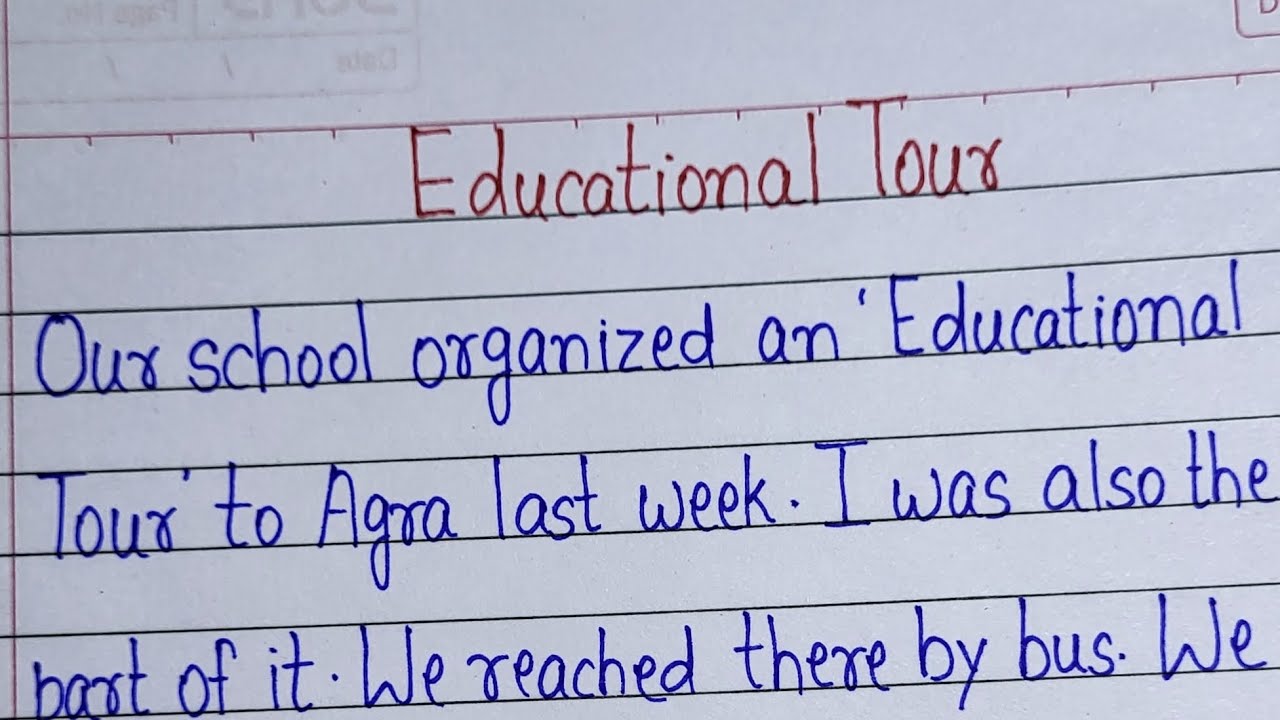 Educational Tour
Our school organized an 'Educational
Tour' to Agra last week. I was also the
part of it. We reached there by bus. We